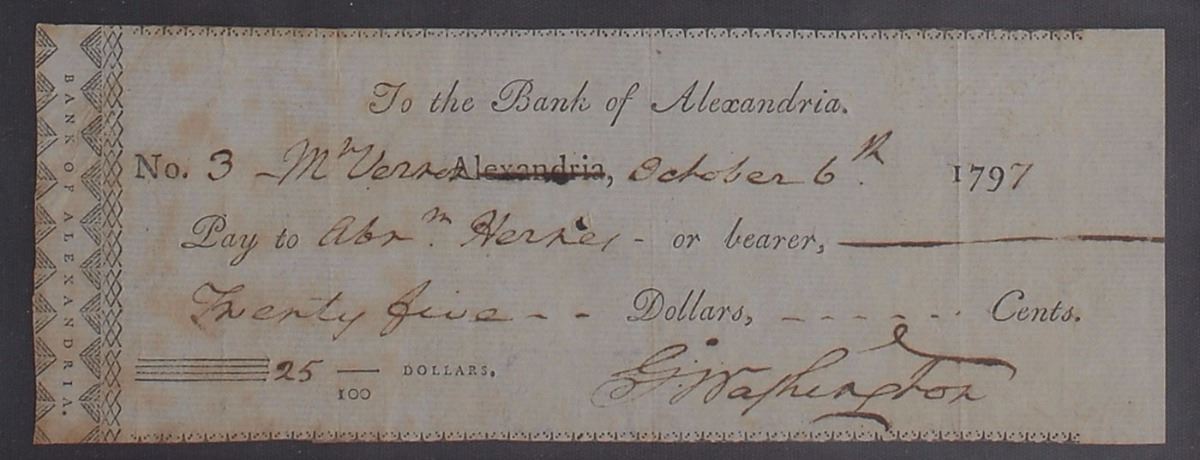 BANK OF ALEXANDRIA.
To the Bank of Alexandria.
No. 3 Mt Vernon Alexandria, October 6th 1797
Pay to Abrm. Hernes - or bearer,
Twenty five - - Dollars, - - - - - - Cents.
25 — DOLLARS.
100
G. Washington